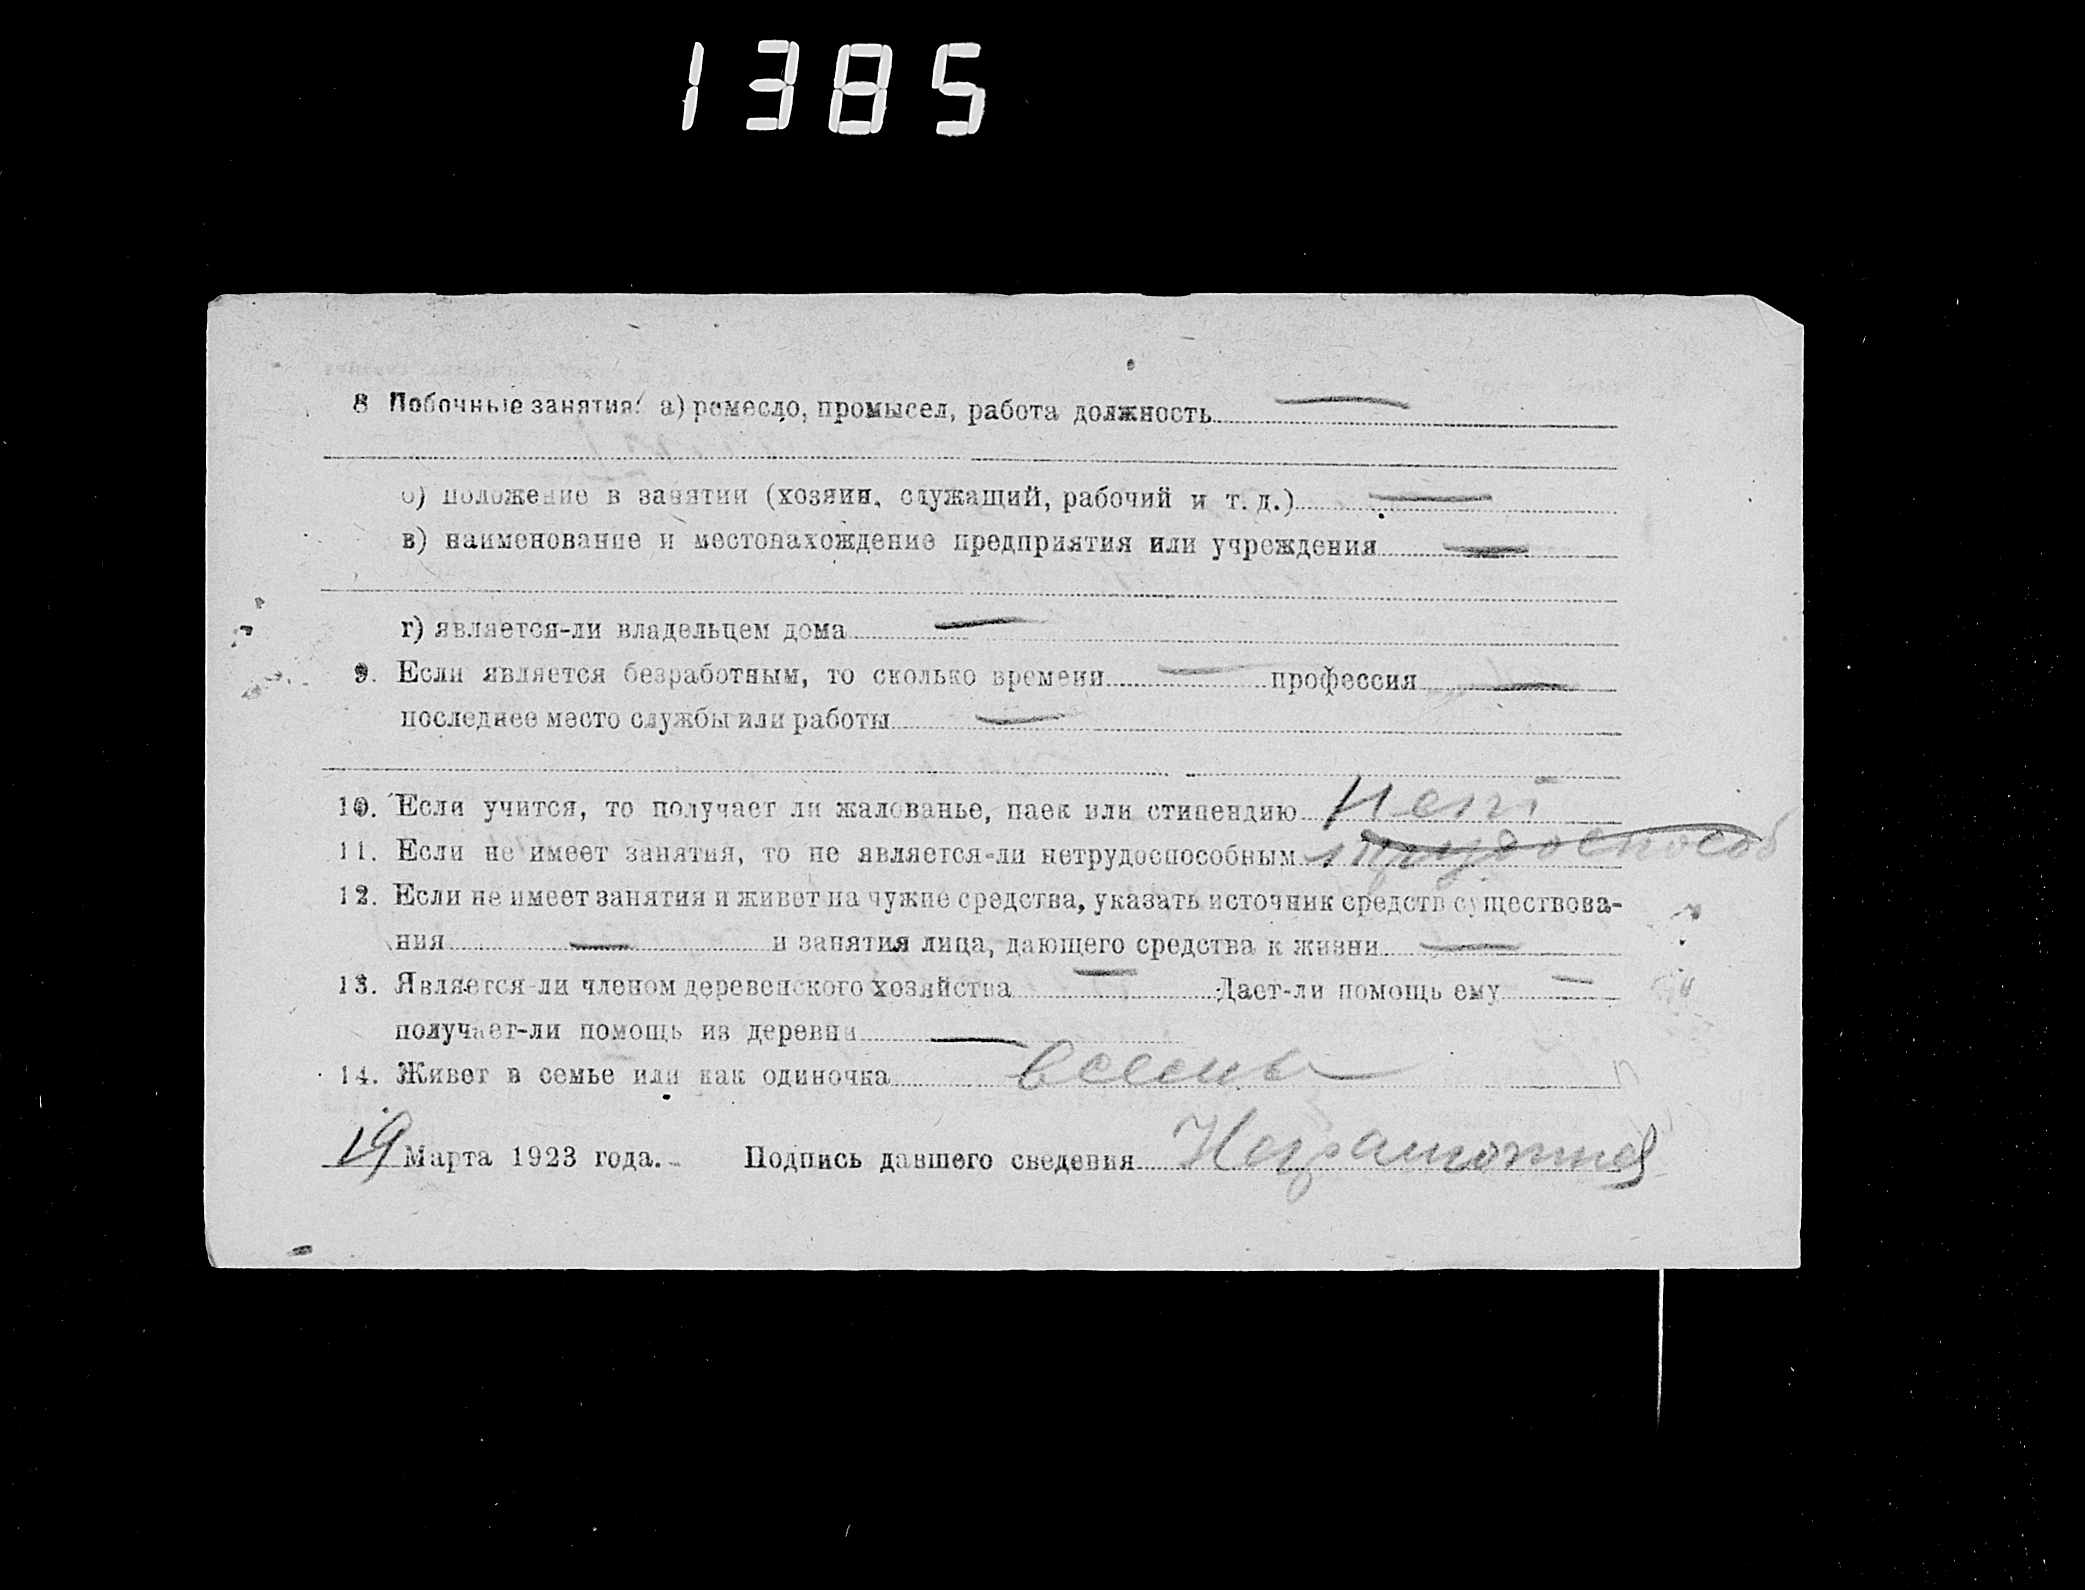 1385
8 Побочные занятия: а) ремесло, промысел, работа должность —
б) положение в занятии (хозяин, служащий, рабочий и т. д.) —
в) наименование и местонахождение предприятия или учреждения —
г) является-ли владельцем дома —
9. Если является безработным, то сколько времени — профессия —
последнее место службы или работы —
10. Если учится, то получает ли жалованье, паек или стипендию Нет
11. Если не имеет занятия, то не является-ли нетрудоспособным трудоспособ
12. Если не имеет занятия и живет на чужие средства, указать источник средств существова-
ния — и занятия лица, дающего средства к жизни —
13. Является-ли членом деревенского хозяйства — Дает-ли помощь ему —
получает-ли помощь из деревни —
14. Живет в семье или как одиночка всемье
19 Марта 1923 года. Подпись давшего сведения Неграмотный